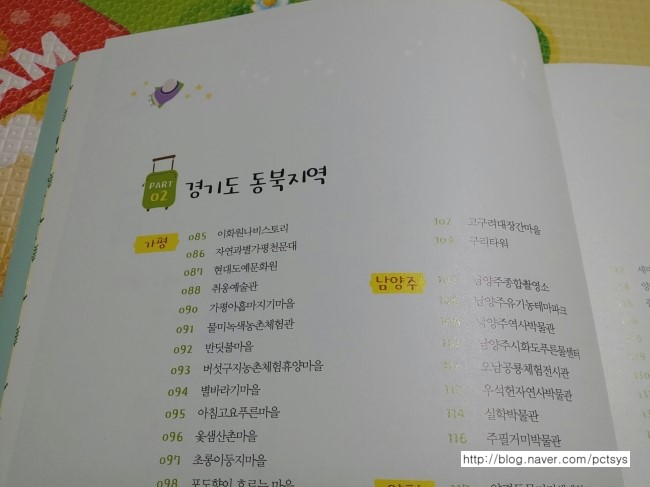 AM
PART
02
경기도 동북지역
가평
085 이화원나비스토리
086 자연과별가평천문대
087 현대도예문화원
088 취옹예술관
090 가평아홉마지기마을
091 물미녹색농촌체험관
092 반딧불마을
093 버섯구지농촌체험휴양마을
094 별바라기마을
095 아침고요푸른마을
096 옻샘산촌마을
097 초롱이둥지마을
098 포도향이 흐르는 마을
102 고구려대장간마을
구리타워
남양주
남양주종합촬영소
남양주유기농테마파크
남양주역사박물관
남양주시화도푸른물센터
오남공룡체험전시관
우석헌자연사박물관
114 실학박물관
116 주필거미박물관
http://blog.naver.com/pctsys